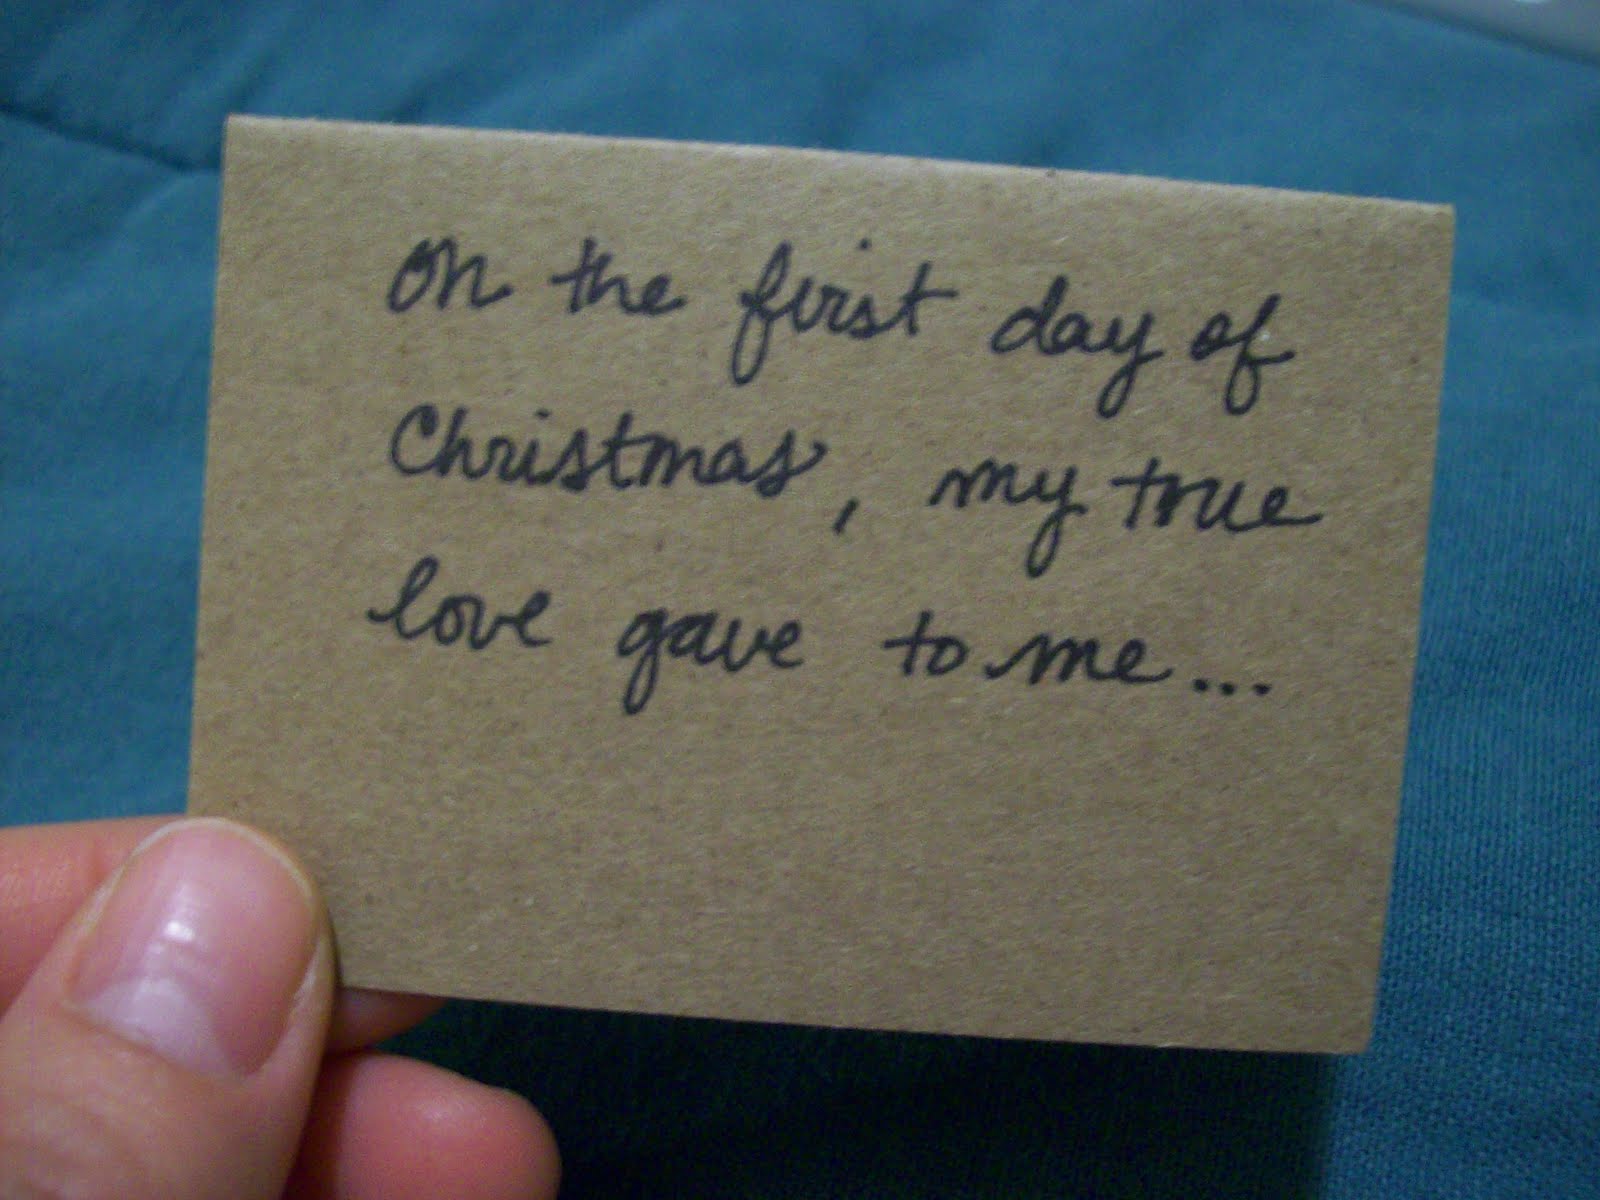 On the first day of
Christmas, my true
love gave to me...